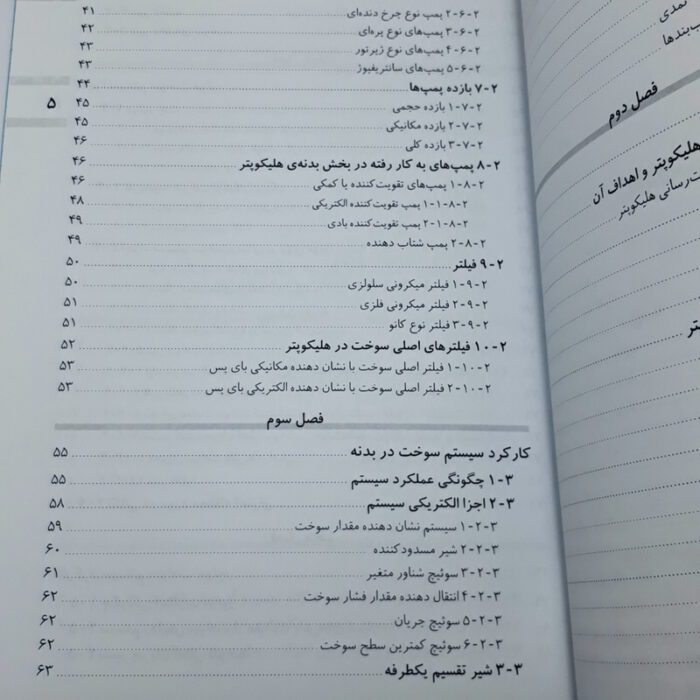 ۲-۶-۲ پمپ نوع چرخ دنده‌ای ۴۱
۲-۶-۳ پمپ‌های نوع پره‌ای ۴۲
۲-۶-۴ پمپ‌های نوع ژیرتور ۴۳
۲-۶-۵ پمپ‌های سانتریفیوژ ۴۳
۲-۷ بازده پمپ‌ها ۴۴
۲-۷-۱ بازده حجمی ۴۵
۲-۷-۲ بازده مکانیکی ۴۵
۲-۷-۳ بازده کلی ۴۶
۲-۸ پمپ‌های به کار رفته در بخش بدنه‌ی هلیکوپتر ۴۶
۲-۸-۱ پمپ‌های تقویت‌کننده یا کمکی ۴۶
۲-۸-۱-۱ پمپ تقویت‌کننده الکتریکی ۴۸
۲-۸-۱-۲ پمپ تقویت‌کننده بادی ۴۹
۲-۸-۲ پمپ شتاب دهنده ۴۹
۲-۹ فیلتر ۵۰
۲-۹-۱ فیلتر میکرونی سلولزی ۵۰
۲-۹-۲ فیلتر میکرونی فلزی ۵۱
۲-۹-۳ فیلتر نوع کانو ۵۱
۲-۱۰ فیلترهای اصلی سوخت در هلیکوپتر ۵۲
۲-۱۰-۱ فیلتر اصلی سوخت با نشان دهنده مکانیکی بای پس ۵۳
۲-۱۰-۲ فیلتر اصلی سوخت با نشان دهنده الکتریکی بای پس ۵۳
فصل سوم
کارکرد سیستم سوخت در بدنه ۵۵
۳-۱ چگونگی عملکرد سیستم ۵۵
۳-۲ اجزا الکتریکی سیستم ۵۸
۳-۲-۱ سیستم نشان دهنده مقدار سوخت ۵۹
۳-۲-۲ شیر مسدودکننده ۶۰
۳-۲-۳ سوئیچ شناور متغیر ۶۱
۳-۲-۴ انتقال دهنده مقدار فشار سوخت ۶۲
۳-۲-۵ سوئیچ جریان ۶۲
۳-۲-۶ سوئیچ کمترین سطح سوخت ۶۲
۳-۳ شیر تقسیم یکطرفه ۶۳
۵
فصل دوم
هلیکوپتر و اهداف آن
هلیکوپتر